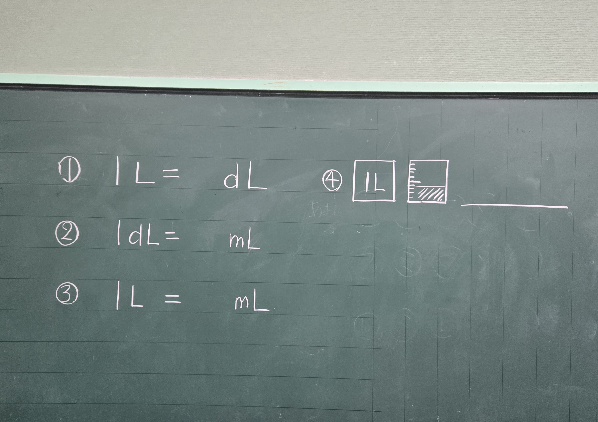 ① 1L= dL
② 1dL= mL
③ 1L = mL
④ 1L